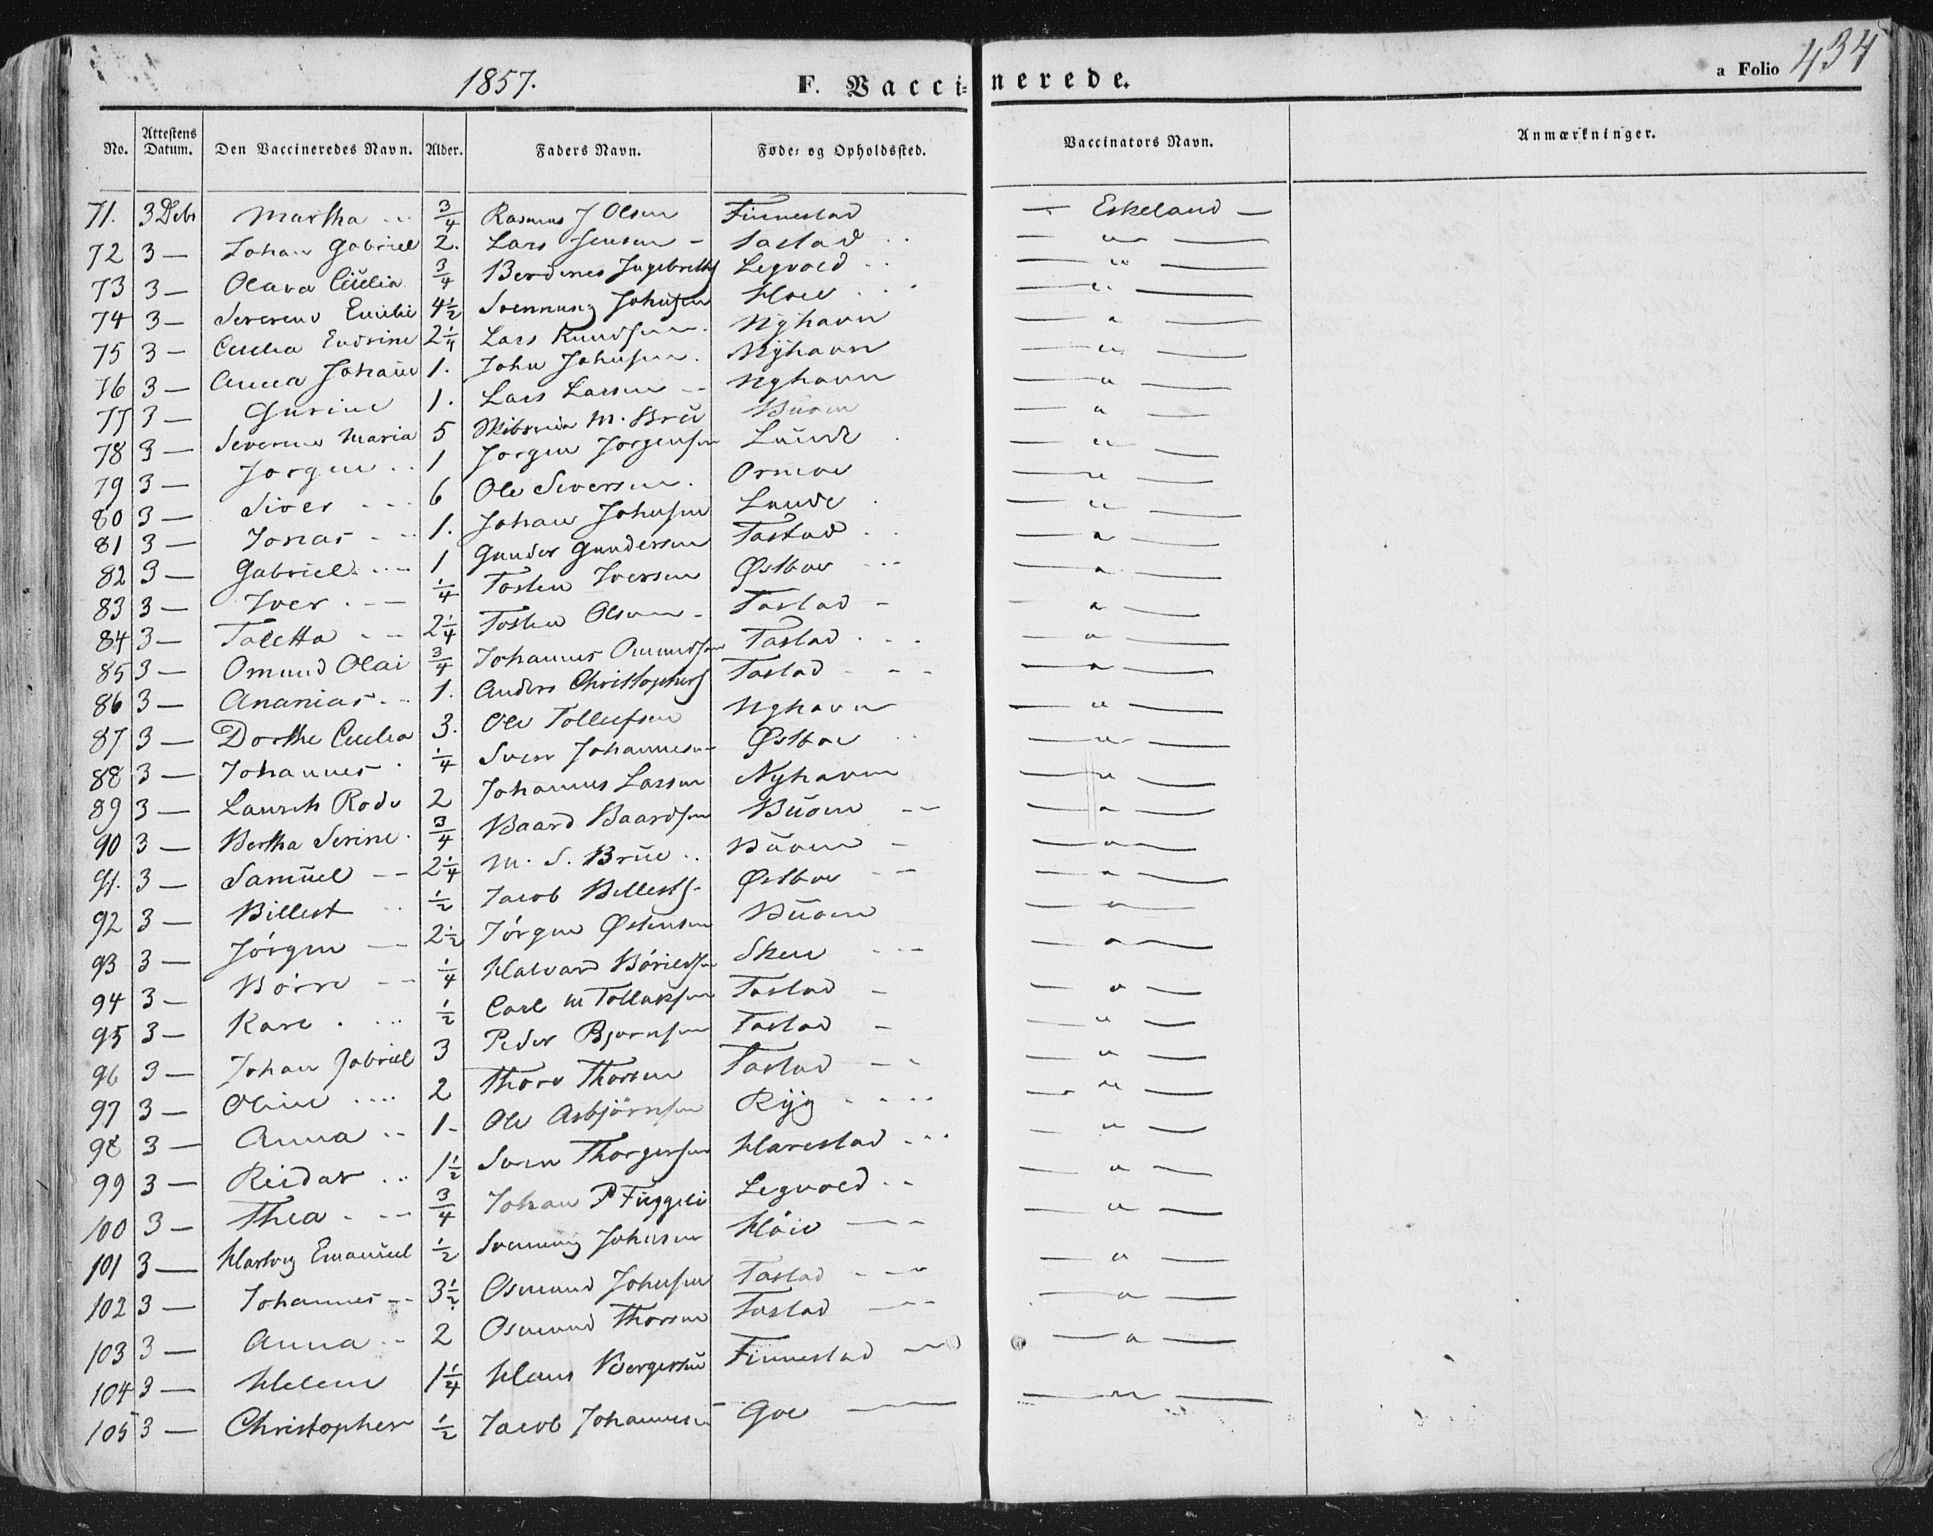 1857. F. Vaccinerede. a Folio 434
No. Attestens Datum. Den Vaccineredes Navn. Alder. Faders Navn. Føde- og Opholdssted. Vaccinators Navn. Anmærkninger.
71. 3 Debr Martha 3/4 Rasmus J Olsen Finnestad — Eskeland —
72 3 — Johan Gabriel 2. Lars Jensen Tastad — " —
73 3 — Olava Cecilia 3/4 Berdines Ingebretts Legvold — " —
74 3 — Severene Emilie 4 1/2 Svennung Johnsen Høie — " —
75 3 — Cecilia Endrine 2 1/4 Lars Knudsen Nyhavn — " —
76 3 — Anna Johane 1. John Johnsen Nyhavn — " —
77 3 — Gurine 1. Lars Larsen Nyhavn — " —
78 3 — Severine Maria 5 M. Brü Buøen — " —
79 3 — Jørgen 1 Jørgen Jørgensen Lunde — " —
80 3 — Siver 6 Ole Seversen Ormøe — " —
81 3 — Jonas 1. Johan Johnsen Lunde — " —
82 3 — Gabriel 1 Gunder Gundersen Tastad — " —
83 3 — Iver 1/4 Tosten Iversen Østbøe — " —
84 3 — Taletta 2 1/4 Tosten Olsen Tastad — " —
85 3 — Omund Olai 3/4 Johannes Omundsen Tastad — " —
86 3 — Ananias 1. Anders Christophers Tastad — " —
87 3 — Dorthe Cecilia 3. Ole Tollefsen Nyhavn — " —
88 3 — Johannes 1/4 Sven Johannesen Østbøe — " —
89 3 — Lauseh Rode 2 Johannes Larsen Nyhavn — " —
90 3 — Bertha Serine 3/4 Baard Baardsen Buøen — " —
91. 3 — Samüel 2 1/4 M. S. Brüe Buøen — " —
92 3 — Billest 1/2 Jacob Billests Østbøe — " —
93 3 — Jørgen 2 1/2 Jørgen Østensen Buøen — " —
94 3 — Børre 1/4 Halvard Børildsen Skeie — " —
95 3 — Karl 1/2 Carl M Tollaksen Tastad — " —
96 3 — Johan Gabriel 3 Peder Bjørnsen Tastad — " —
97 3 — Oline 2 Thore Thorsen Tastad — " —
98 3 — Anna 1 Ole Asbjørnsen Ryg — " —
99 3 — Reidar 1 1/2 Sven Thorgersen Harestad — " —
100 3 — Thea 3/4 Johan P Függeli Legvold — " —
101 3 — Hartvig Emanüel 1/2 Svennung Johnsen Høie — " —
102 3 — Johannes 3 1/2 Osmund Johnsen Tastad — " —
103 3 — Anna 2 Osmund Thorsen Tastad — " —
104 3 — Helene 1 1/4 Hans Børgersen Finnestad — " —
105 3 — Christopher 1/2 Jacob Johannesen Goe — " —